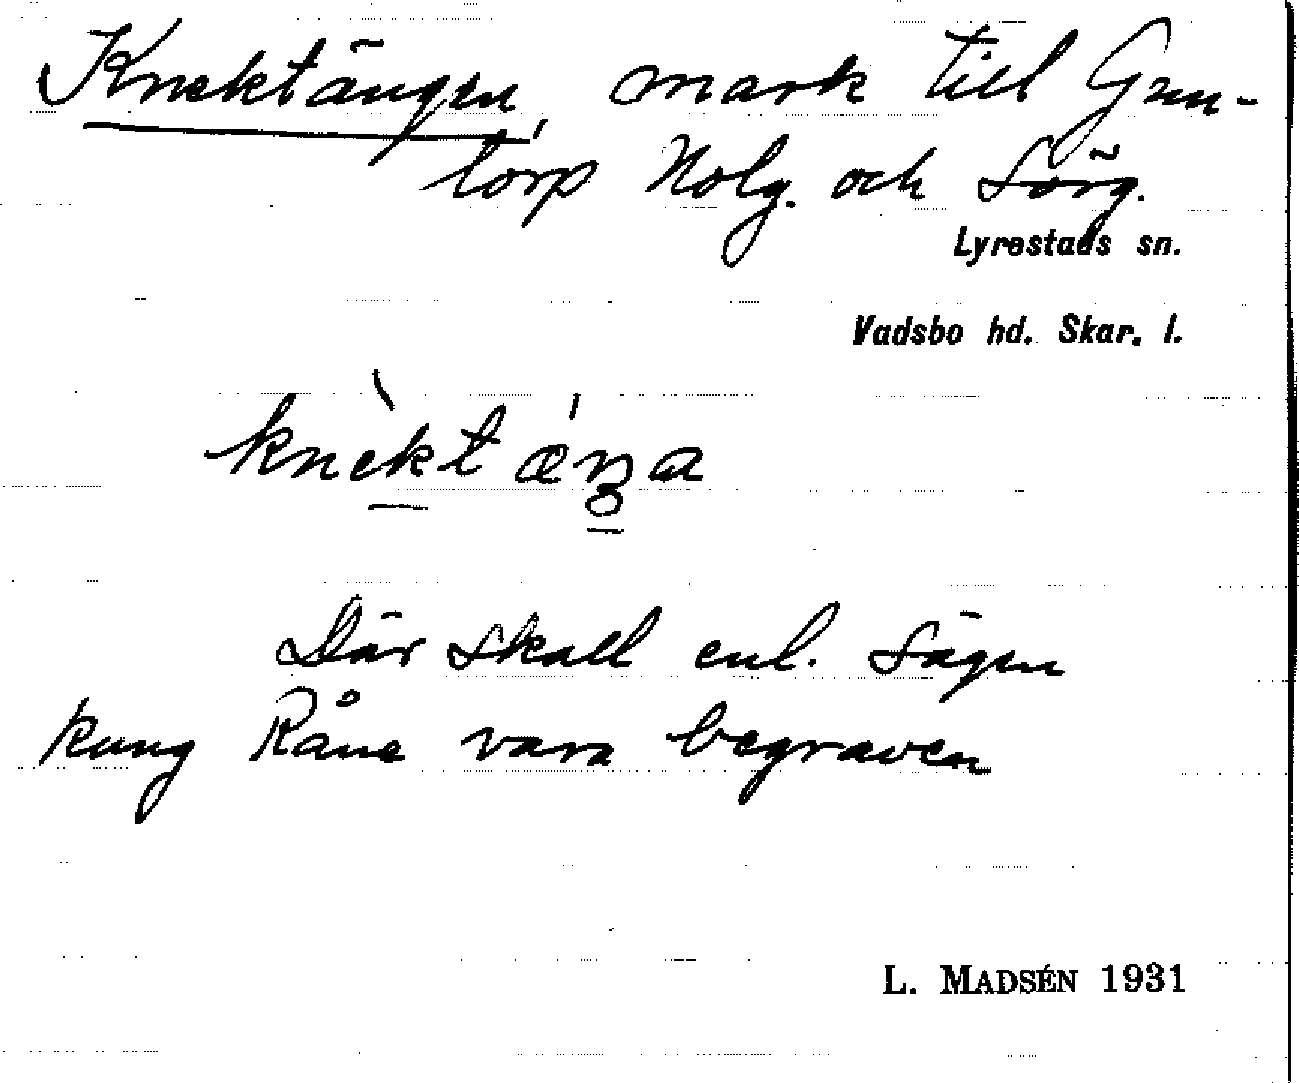 Knektängen, mark till Gun-
torp Nolg. och Sörg.
Lyrestads sn.
Vadsbo hd. Skar. l.
knèktǽŋa
Där skall enl. sägen
kung Råne vara begraven
L. MADSÉN 1931